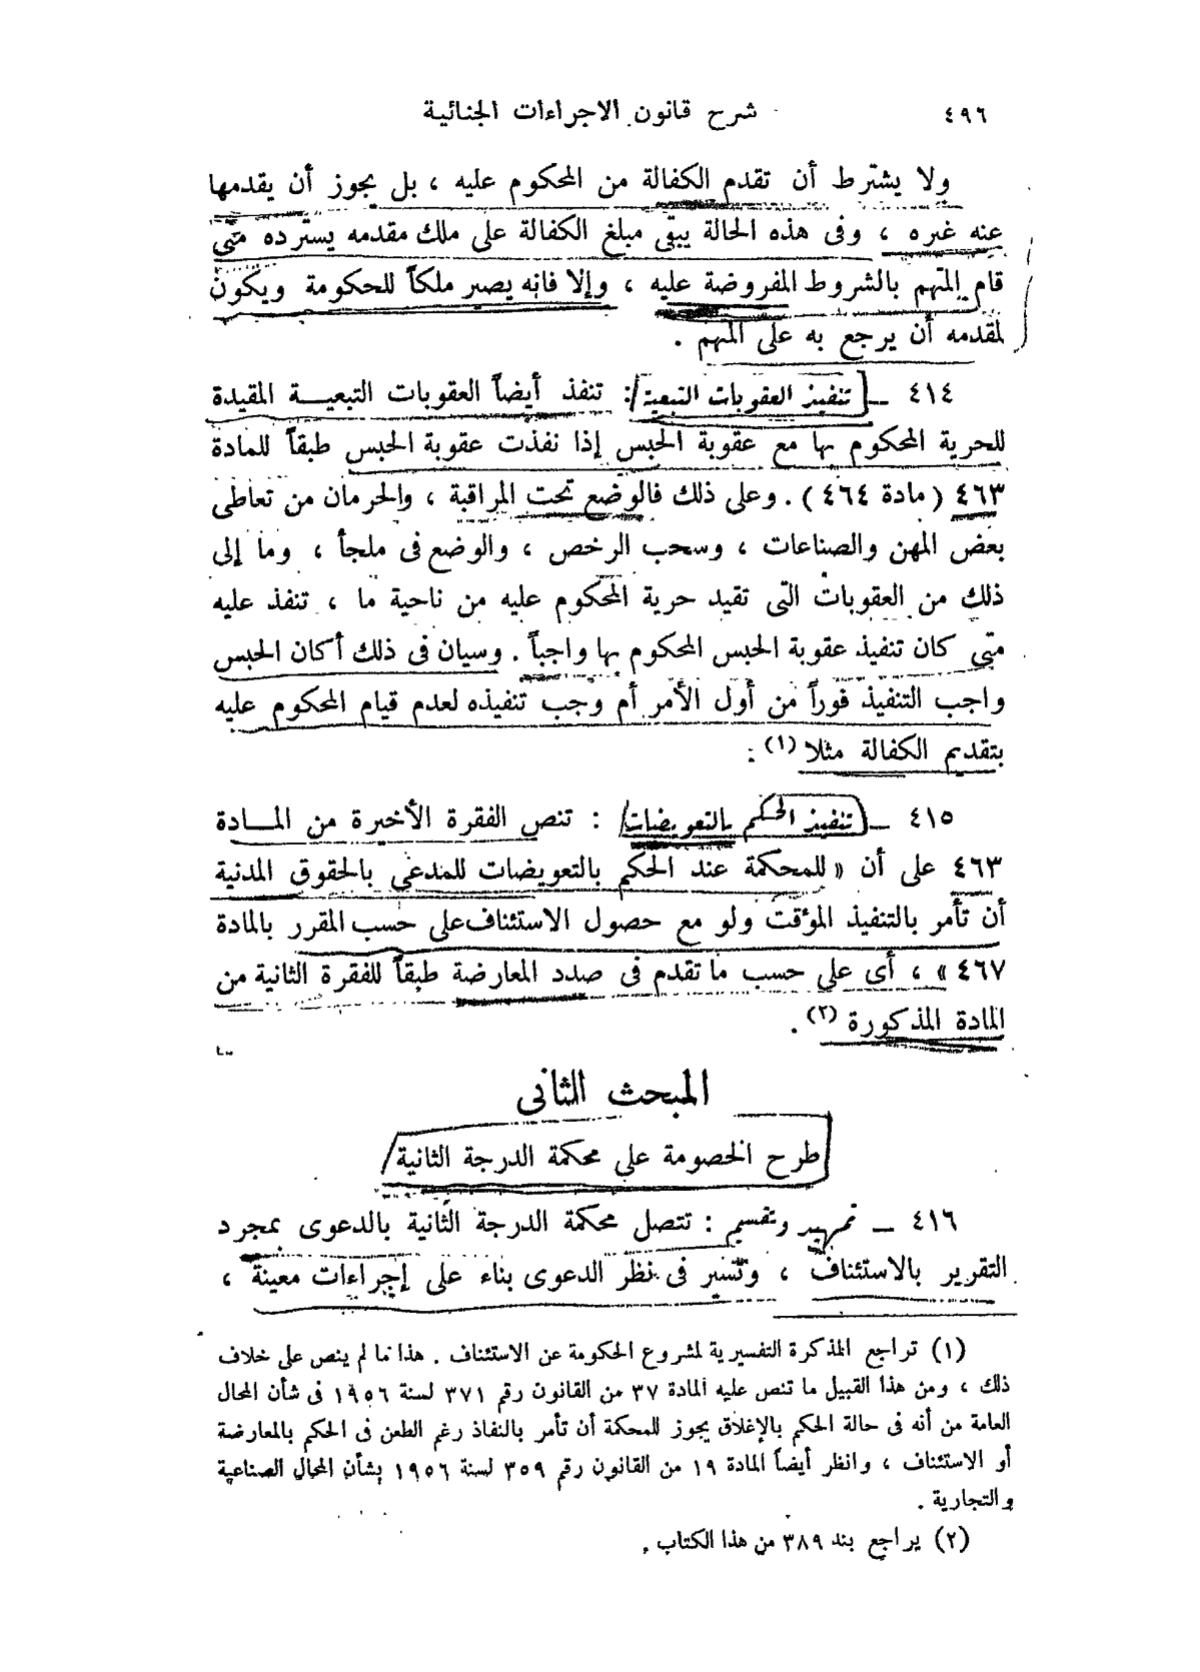 ٤٩٦ شرح قانون الاجراءات الجنائية
ولا يشترط أن تقدم الكفالة من المحكوم عليه ، بل يجوز أن يقدمها
عنه غيره ، وفى هذه الحالة يبقى مبلغ الكفالة على ملك مقدمه يسترده متى
قام المتهم بالشروط المفروضة عليه ، وإلا فانه يصير ملكاً للحكومة ويكون
لمقدمه أن يرجع به على المتهم .
٤١٤ ــ تنفيذ العقوبات التبعية : تنفذ أيضاً العقوبات التبعيــة المقيدة
للحرية المحكوم بها مع عقوبة الحبس إذا نفذت عقوبة الحبس طبقاً للمادة
٤٦٣ ( مادة ٤٦٤ ) . وعلى ذلك فالوضع تحت المراقبة ، والحرمان من تعاطى
بعض المهن والصناعات ، وسحب الرخص ، والوضع فى ملجأ ، وما إلى
ذلك من العقوبات التى تقيد حرية المحكوم عليه من ناحية ما ، تنفذ عليه
متى كان تنفيذ عقوبة الحبس المحكوم بها واجباً . وسيان فى ذلك أكان الحبس
واجب التنفيذ فوراً من أول الأمر أم وجب تنفيذه لعدم قيام المحكوم عليه
بتقديم الكفالة مثلا (١) .
٤١٥ ــ تنفيذ الحكم بالتعويضات : تنص الفقرة الأخيرة من المــادة
٤٦٣ على أن « للمحكمة عند الحكم بالتعويضات للمدعى بالحقوق المدنية
أن تأمر بالتنفيذ المؤقت ولو مع حصول الاستئناف على حسب المقرر بالمادة
٤٦٧ » ، أى على حسب ما تقدم فى صدد المعارضة طبقاً للفقرة الثانية من
المادة المذكورة (٢) .
المبحث الثانى
طرح الخصومة على محكمة الدرجة الثانية
٤١٦ ــ تمهيد وتقسيم : تتصل محكمة الدرجة الثانية بالدعوى بمجرد
التقرير بالاستئناف ، وتسير فى نظر الدعوى بناء على إجراءات معينة ،
(١) تراجع المذكرة التفسيرية لمشروع الحكومة عن الاستئناف . هذا ما لم ينص على خلاف
ذلك ، ومن هذا القبيل ما تنص عليه المادة ٣٧ من القانون رقم ٣٧١ لسنة ١٩٥٦ فى شأن المحال
العامة من أنه فى حالة الحكم بالإغلاق يجوز للمحكمة أن تأمر بالنفاذ رغم الطعن فى الحكم بالمعارضة
أو الاستئناف ، وانظر أيضاً المادة ١٩ من القانون رقم ٣٥٩ لسنة ١٩٥٦ بشأن المحال الصناعية
والتجارية .
(٢) يراجع بند ٣٨٩ من هذا الكتاب .